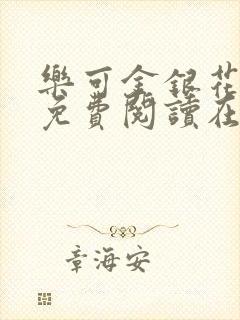 樂可金銀花
免費閱讀在
章海安